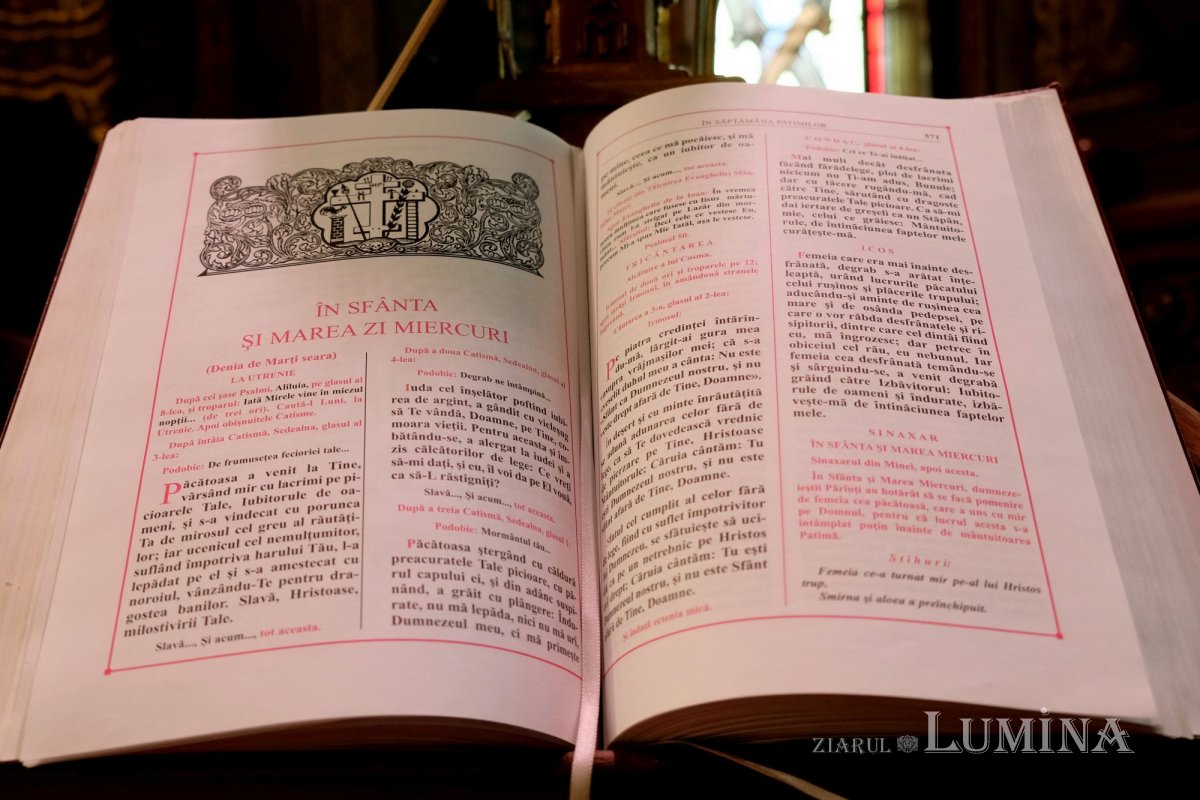 ÎN SFÂNTA
ŞI MAREA ZI MIERCURI
(Denia de Marţi seara)
LA UTRENIE
După cei şase Psalmi, Aliluia, pe glasul al
8-lea, şi troparul: Iată Mirele vine în miezul
nopţii... (de trei ori). Caută-l Luni, la
Utrenie. Apoi obişnuitele Catisme.
După întâia Catismă, Sedealna, glasul al
3-lea:
Podobie: De frumuseţea fecioriei tale...
Păcătoasa a venit la Tine,
vărsând mir cu lacrimi pe pi-
cioarele Tale, Iubitorule de oa-
meni, şi s-a vindecat cu porunca
Ta de mirosul cel greu al răutăţi-
lor; iar ucenicul cel nemulţumitor,
suflând împotriva harului Tău, l-a
lepădat pe el şi s-a amestecat cu
noroiul, vânzându-Te pentru dra-
gostea banilor. Slavă, Hristoase,
milostivirii Tale.
Slavă..., Şi acum..., tot aceasta.
După a doua Catismă, Sedealna, glasul al
4-lea:
Podobie: Degrab ne întâmpină...
Iuda cel înşelător poftind iubi-
rea de argint, a gândit cu vicleşug
să Te vândă, Doamne, pe Tine, co-
moara vieţii. Pentru aceasta şi îm-
bătându-se, a alergat la iudei şi a
zis călcătorilor de lege: Ce vreţi
să-mi daţi, şi eu, îl voi da pe El vouă,
ca să-L răstigniţi?
Slavă..., Şi acum..., tot aceasta.
După a treia Catismă, Sedealna, glasul 1:
Podobie: Mormântul tău...
Păcătoasa ştergând cu căldură
preacuratele Tale picioare, cu pă-
rul capului ei, şi din adânc suspi-
nând, a grăit cu plângere: Îndu-
rate, nu mă lepăda, nici nu mă urî,
Dumnezeul meu, ci mă primeşte
ÎN SĂPTĂMÂNA PATIMILOR
971
mine, ceea ce mă pocăiesc, şi mă
mântuieşte, ca un iubitor de oa-
meni.
Slavă... Şi acum..., tot aceasta.
din Tâlcuirea Evangheliei Sfân-
Evanghelia de la Ioan: În vremea
mulţimea care fusese cu Iisus mărtu-
cum l-a strigat pe Lazăr din mor-
Sfârşitul: Deci cele ce vestesc Eu,
precum Mi-a spus Mie Tatăl, aşa le vestesc.
Psalmul 50.
TRICÂNTAREA
Alcătuire a lui Cosma.
Irmosul de două ori şi troparele pe 12;
iarăşi Irmosul, în amândouă stranele
Cântarea a 3-a, glasul al 2-lea:
Irmosul:
Pe piatra credinţei întărin-
du-mă, lărgit-ai gura mea
asupra vrăjmaşilor mei; că s-a
veselit duhul meu a cânta: Nu este
Sfânt ca Dumnezeul nostru, şi nu
este drept afară de Tine, Doamne».
În deşert şi cu minte înrăutăţită
adună adunarea celor fără de
lege, ca să Te dovedească vrednic
de pierzare pe Tine, Hristoase
Mântuitorule; Căruia cântăm: Tu
eşti Dumnezeul nostru, şi nu este
Sfânt afară de Tine, Doamne.
Sfatul cel cumplit al celor fără
de lege, fiind cu suflet împotrivitor
lui Dumnezeu, se sfătuieşte să uci-
dă ca pe un netrebnic pe Hristos
cel drept; Căruia cântăm: Tu eşti
Dumnezeul nostru, şi nu este Sfânt
afară de Tine, Doamne.
Şi îndată ectenia mică.
CONDAC, glasul al 4-lea:
Podobie: Cel ce Te-ai înălţat...
Mai mult decât desfrânata
făcând fărădelege, ploi de lacrimi
nicicum nu Ţi-am adus, Bunule;
dar cu tăcere rugându-mă, cad
către Tine, sărutând cu dragoste
preacuratele Tale picioare. Ca să-mi
dai iertare de greşeli ca un Stăpân,
mie, celui ce grăiesc: Mântuito-
rule, de întinăciunea faptelor mele
curăţeşte-mă.
ICOS
Femeia care era mai înainte des-
frânată, degrab s-a arătat înţe-
leaptă, urând lucrurile păcatului
celui ruşinos şi plăcerile trupului;
aducându-şi aminte de ruşinea cea
mare şi de osânda pedepsei, pe
care o vor răbda desfrânatele şi ri-
sipitorii, dintre care cel dintâi fiind
eu, mă îngrozesc; dar petrec în
obiceiul cel rău, eu nebunul. Iar
femeia cea desfrânată temându-se
şi sârguindu-se, a venit degrabă
grăind către Izbăvitorul: Iubito-
rule de oameni şi îndurate, izbă-
veşte-mă de întinăciunea faptelor
mele.
SINAXAR
ÎN SFÂNTA ŞI MAREA MIERCURI
Sinaxarul din Minei, apoi acesta.
În Sfânta şi Marea Miercuri, dumneze-
ieştii Părinţi au hotărât să se facă pomenire
de femeia cea păcătoasă, care a uns cu mir
pe Domnul, pentru că lucrul acesta s-a
întâmplat puţin înainte de mântuitoarea
Patimă.
Stihuri:
Femeia ce-a turnat mir pe-al lui Hristos
trup,
Smirna şi aloea a preînchipuit.
ZIARUL LUMINA